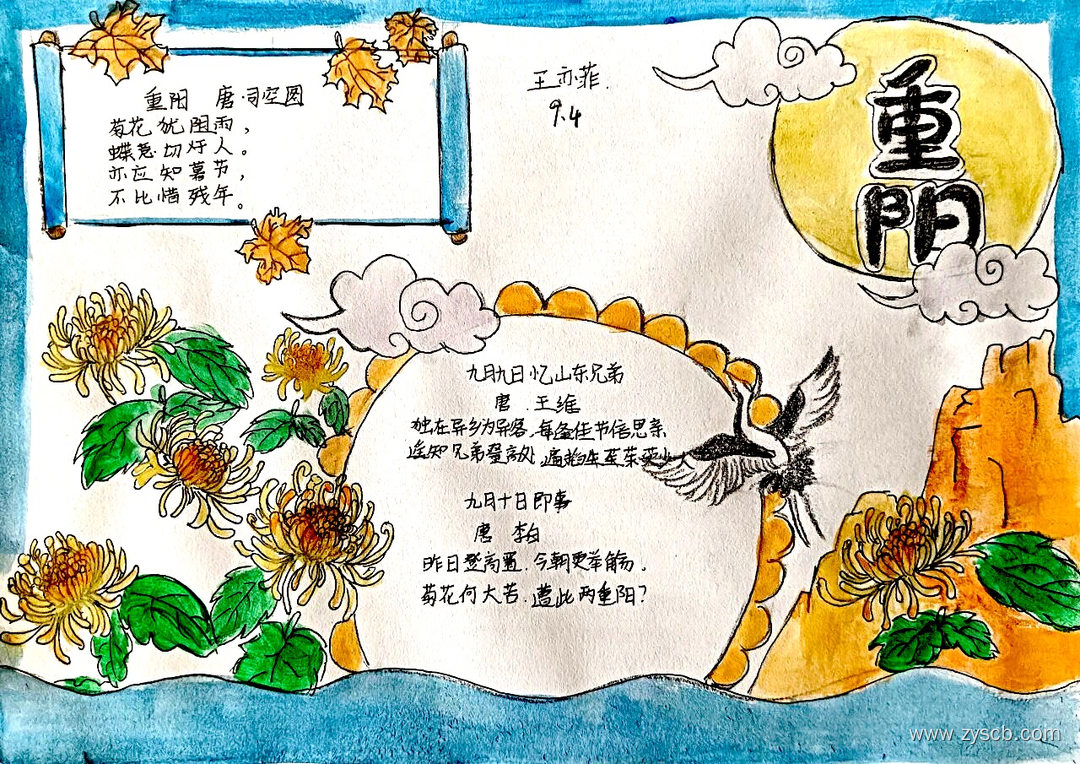 重阳 唐·司空图
菊花犹阻雨，
蝶急切于人。
亦应知暮节，
不比惜残年。
王亦菲.
9.4
重阳
九月九日忆山东兄弟
唐.王维
独在异乡为异客.每逢佳节倍思亲
遥知兄弟登高处.遍插
九月十日即事
唐 李白
昨日登高罢.今朝更举觞。
菊花何大苦.遭此两重阳？
www.zyscb.com